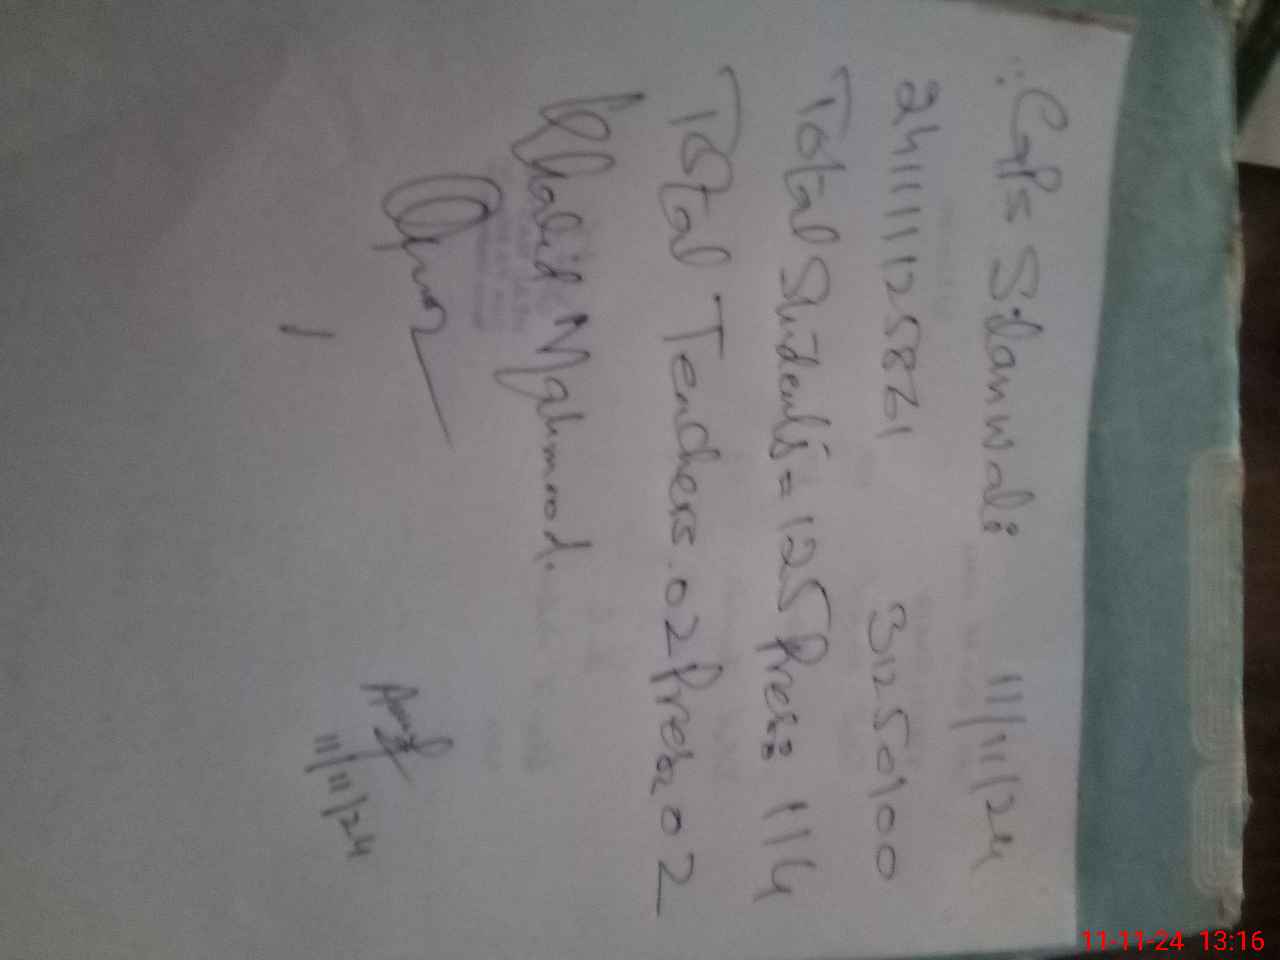 GPS Silanwali 11/11/24
24111125821 31250100
Total Students = 125 Pres: 114
Total Teachers. 02 Pres: 02
Khalid Mahmood.
11/11/24
11-11-24 13:16